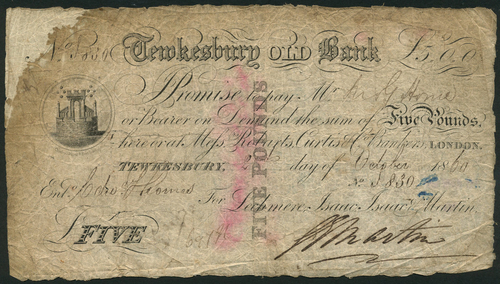 No. Tewkesbury OLD Bank £5,0,0
Promise to pay Mr
or Bearer on Demand the sum of Five Pounds.
here or at Messrs Robarts, Curtis & Co. Bankers LONDON.
TEWKESBURY, 2 day of October 1860
No. 3830
Entd. Thomas For Lechmere, Isaac, Isaac & Martin
£ FIVE
Martin
FIVE POUNDS